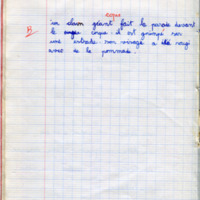 cirque
B
un clown géant fait la parade devant
le cirque. il est grimpé sur
une estrade. son visage a été rougi
avec de la pommade.